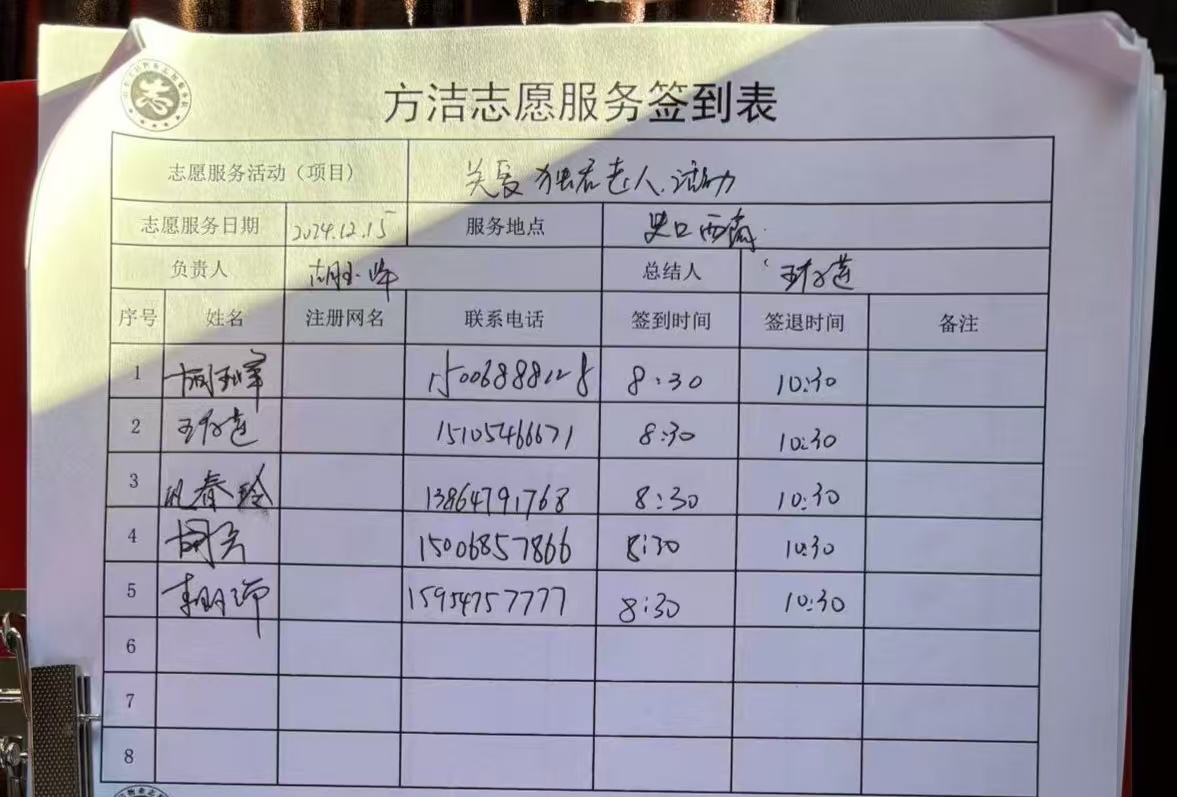 志
方洁志愿服务签到表
志愿服务活动（项目） 关爱独居老人活动
志愿服务日期 2024.12.15 服务地点 史口西商
负责人 总结人
序号 姓名 注册网名 联系电话 签到时间 签退时间 备注
1 15006888128 8:30 10:30
2 15105466671 8:30 10:30
3 春玲 13864791768 8:30 10:30
4 15006857866 8:30 10:30
5 15954757777 8:30 10:30
6
7
8